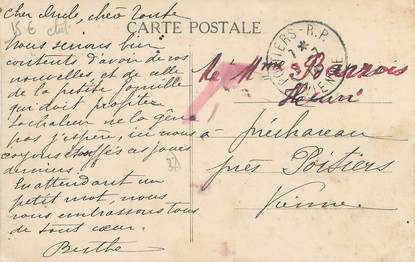 Cher Oncle, chère Tante
CARTE POSTALE
15 €
Nous serions bien
contents d'avoir de vos
nouvelles et de celle
de la petite famille
qui doit profiter
la chaleur ne la gêne
pas j'espère, ici nous
croyions étouffés ces jours
derniers.
En attendant un
petit mot, nous
vous embrassons tous
de tout cœur.
Berthe
POITIERS-R.P.
VIENNE
Mr Mme
Henri
à
près Poitiers
Vienne.